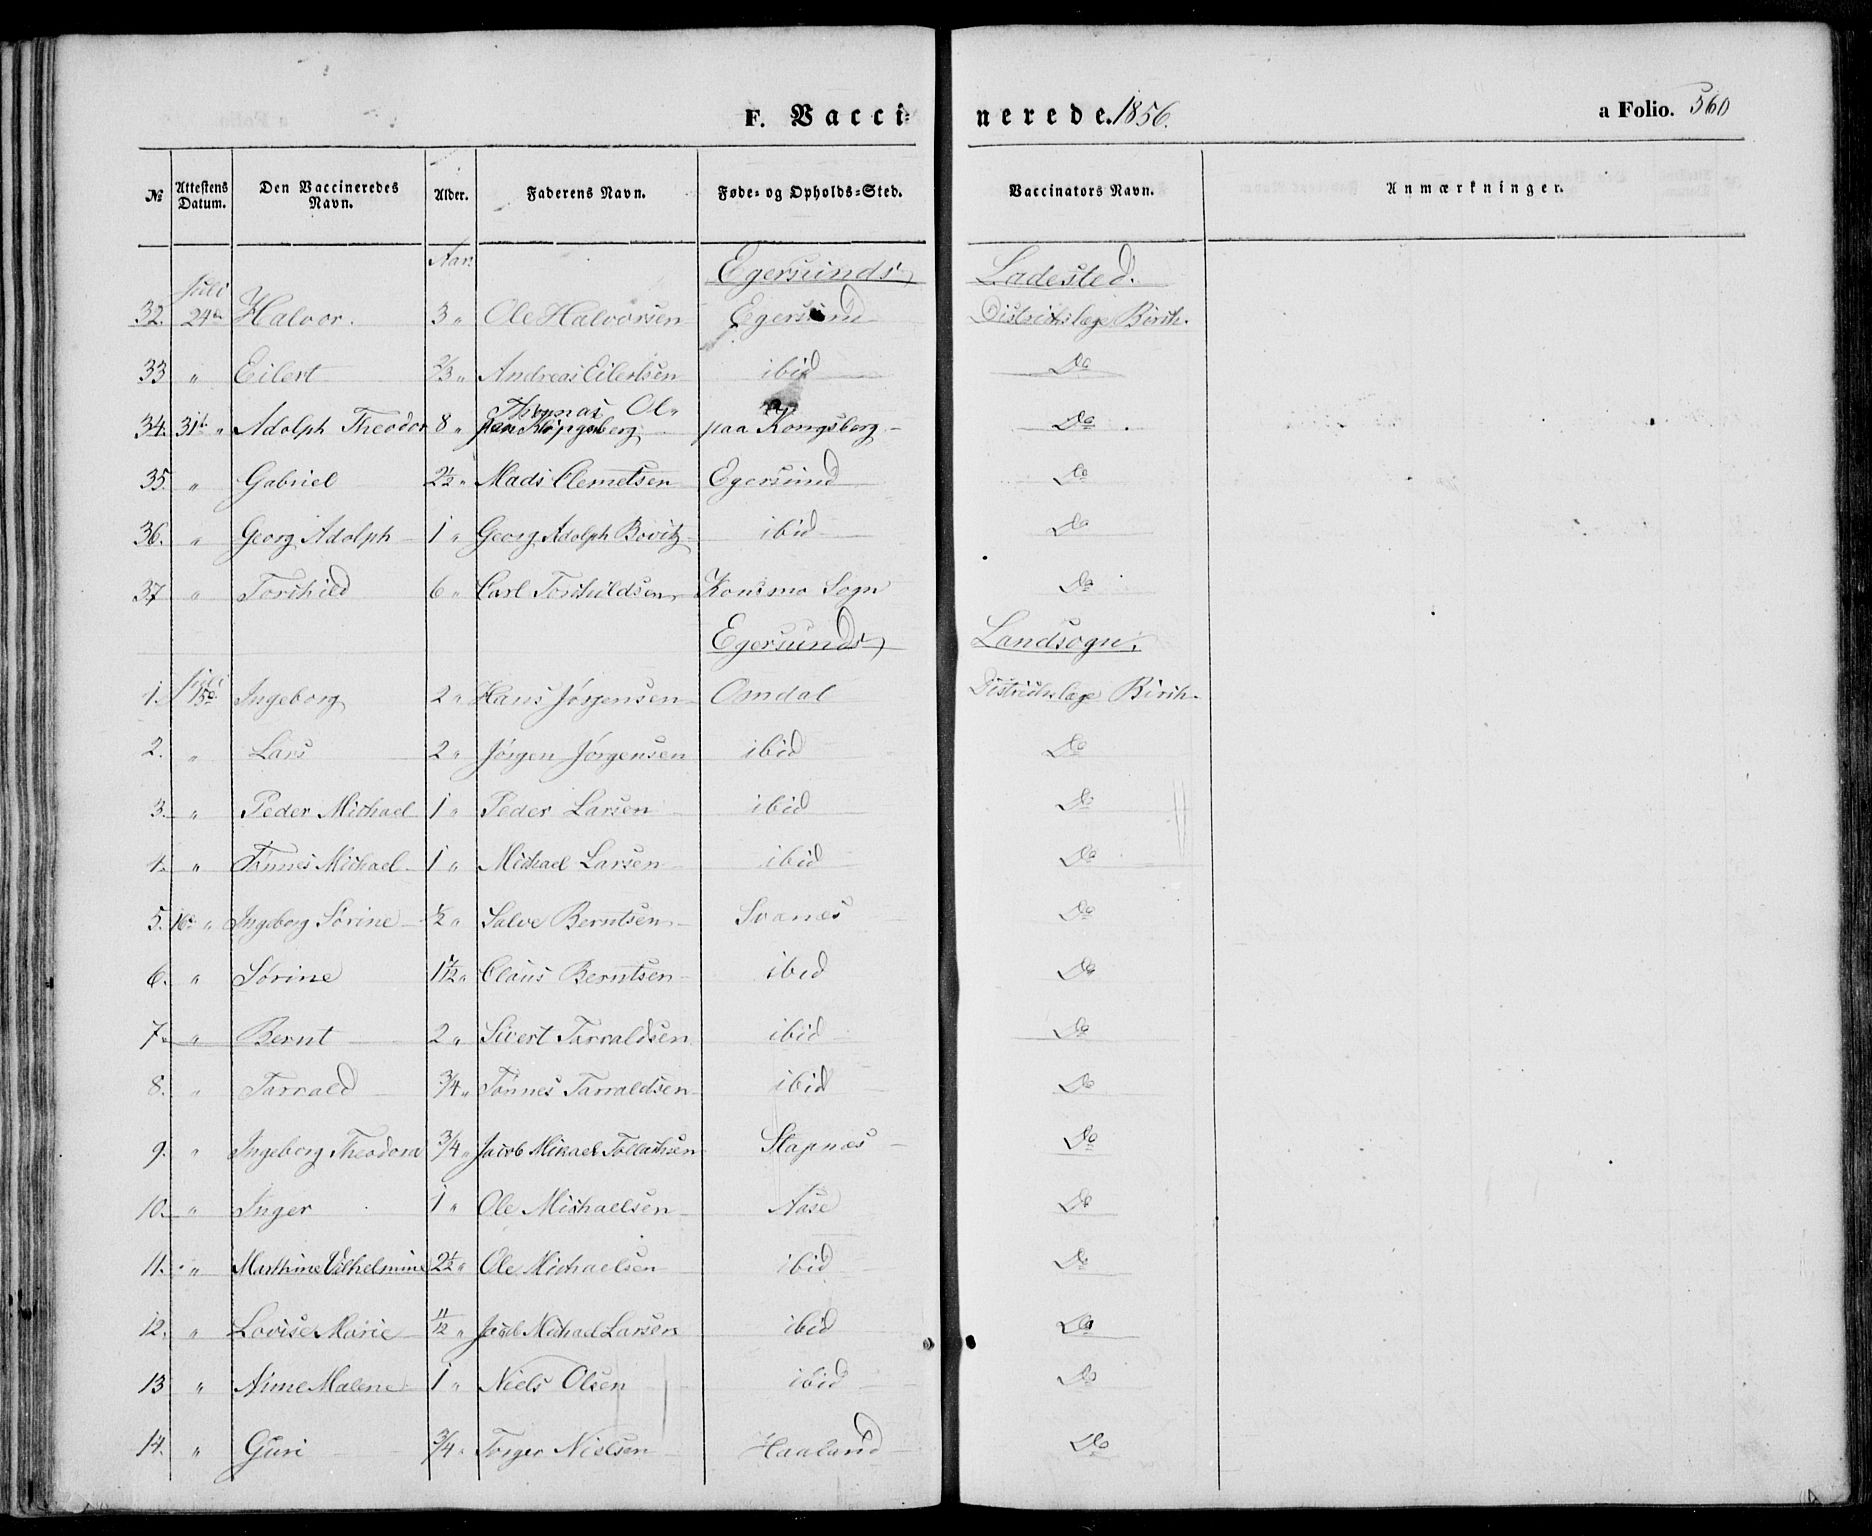 F. Vaccinerede. 1856. a Folio. 560
№ Attestens Datum. Den Vaccineredes Navn. Alder. Faderens Navn. Føde- og Opholds-Sted. Vaccinators Navn. Anmærkninger.
Aar. Egersunds Ladested.
32. Juli 24de Halvor. 3 " Ole Halvorsen Egersund Districtslæge Birch.
33 " Eilert 2/3 " Andreas Eilertsen ibid Do
34. 31te " Adolph Theodor 8 " Thomas paa Kongsberg Do
35. " Gabriel 2½ " Mads Clemetsen Egersund Do
36. " Georg Adolph 1 " Georg Adolph Bovitz ibid Do
37 " Torkild 6 " Carl Torkildsen Konsmo Sogn Do
Egersunds Landsogn.
1. Juli 15de Ingeborg 2 " Hans Jørgensen Omdal Districtslæge Birch.
2. " Lars 2 " Jørgen Jørgensen ibid Do
3. " Peder Michael 1 " Peder Larsen ibid Do
4. " Tønnes Michael 1 " Michael Larsen ibid Do
5. 16de " Ingeborg Sørine ½ " Salve Berntsen Svanes Do
6. " Sørine 1 " Claus Berntsen ibid Do
7. " Bernt 2 " Sivert Tarraldsen ibid Do
8. " Tarrald 3/4 " Tønnes Tarraldsen ibid Do
9. " Ingeborg Theodora 3/4 " Jacob Mikael Tollachsen Stapnes Do
10. " Inger 1 " Ole Michaelsen Aase Do
11. " Marthine Vilhelmine 2½ " Ole Michaelsen ibid Do
12. " Lovise Marie 11/12 " Jacob Michael Larsen ibid Do
13 " Anne Malene 1 " Niels Olsen ibid Do
14. " Guri 3/4 " Torger Nielsen Haaland Do